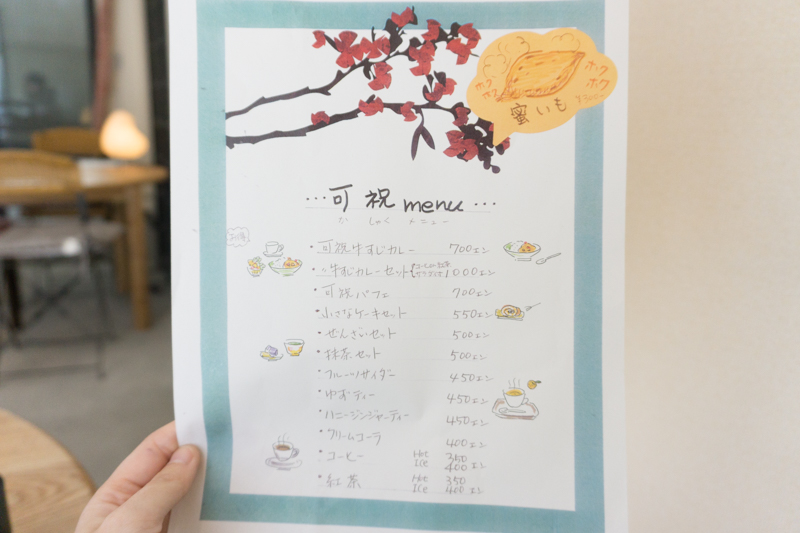 ホク
ホク
ホク
ホク
蜜いも
…可祝menu…
かしゅくメニュー
・可祝牛すじカレー 700エン
・〃牛すじカレーセット 1000エン
・可祝パフェ 700エン
・小さなケーキセット 550エン
・ぜんざいセット 500エン
・抹茶セット 500エン
・フルーツサイダー 450エン
・ゆずティー 450エン
・ハニージンジャーティー 450エン
・クリームコーラ 400エン
・コーヒー Hot 350
Ice 400エン
・紅茶 Hot 350
Ice 400エン